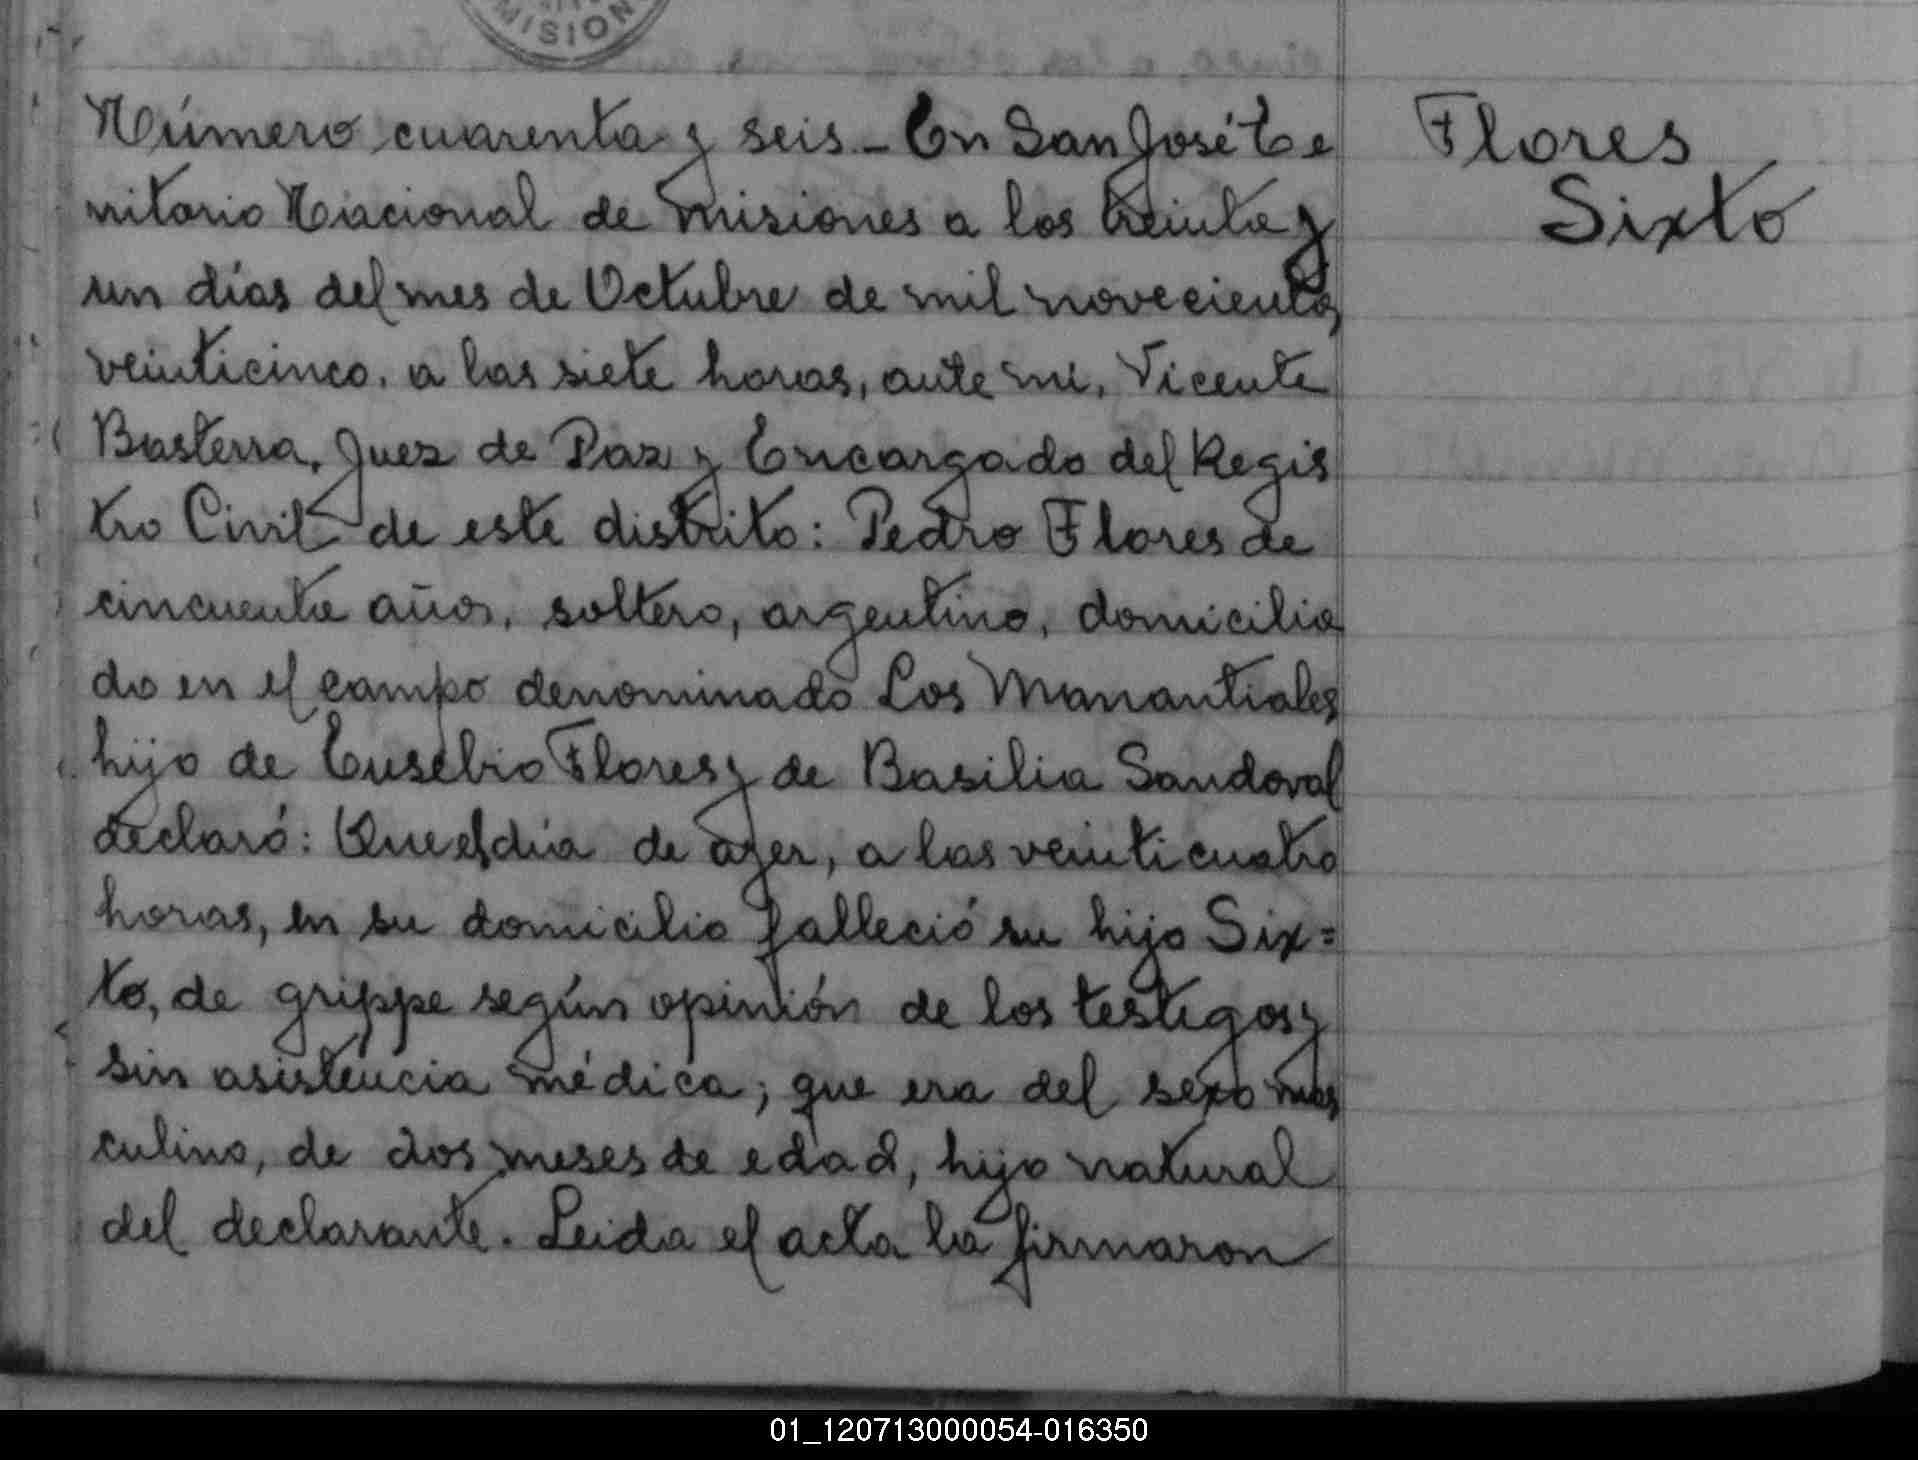 MISION
Número cuarenta y seis.- En San José Te
rritorio Nacional de Misiones a los treinta y
un días del mes de Octubre de mil novecientos
veinticinco, a las siete horas, ante mi, Vicente
Basterra, Juez de Paz y Encargado del Regis
tro Civil de este distrito: Pedro Flores de
cincuenta años, soltero, argentino, domicilia
do en el campo denominado Los Manantiales
hijo de Eusebio Flores y de Basilia Sandoval
declaró: Que el día de ayer, a las veinticuatro
horas, en su domicilio falleció su hijo Six=
to, de grippe según opinión de los testigos y
sin asistencia médica; que era del sexo mas
culino, de dos meses de edad, hijo natural
del declarante. Leida el acta la firmaron
Flores
Sixto
01_120713000054-016350